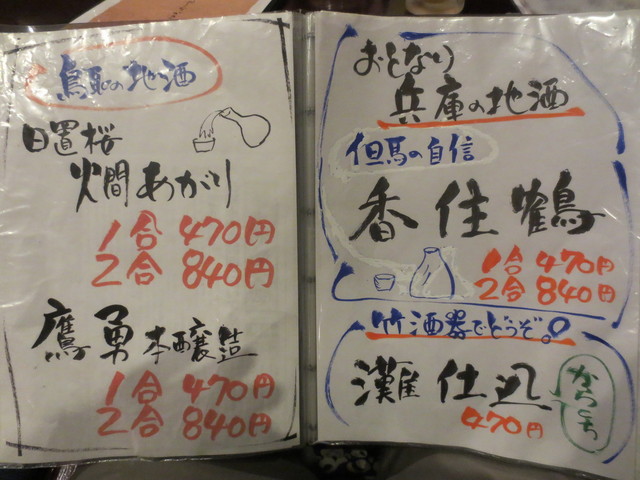 鳥取の地酒
日置桜
火間あがり
1合 470円
2合 840円
鷹勇 本醸造
1合 470円
2合 840円
おとなり
兵庫の地酒
但馬の自信
香住鶴
1合 470円
2合 840円
竹酒器でどうぞ。
灘仕込
470円
からくち